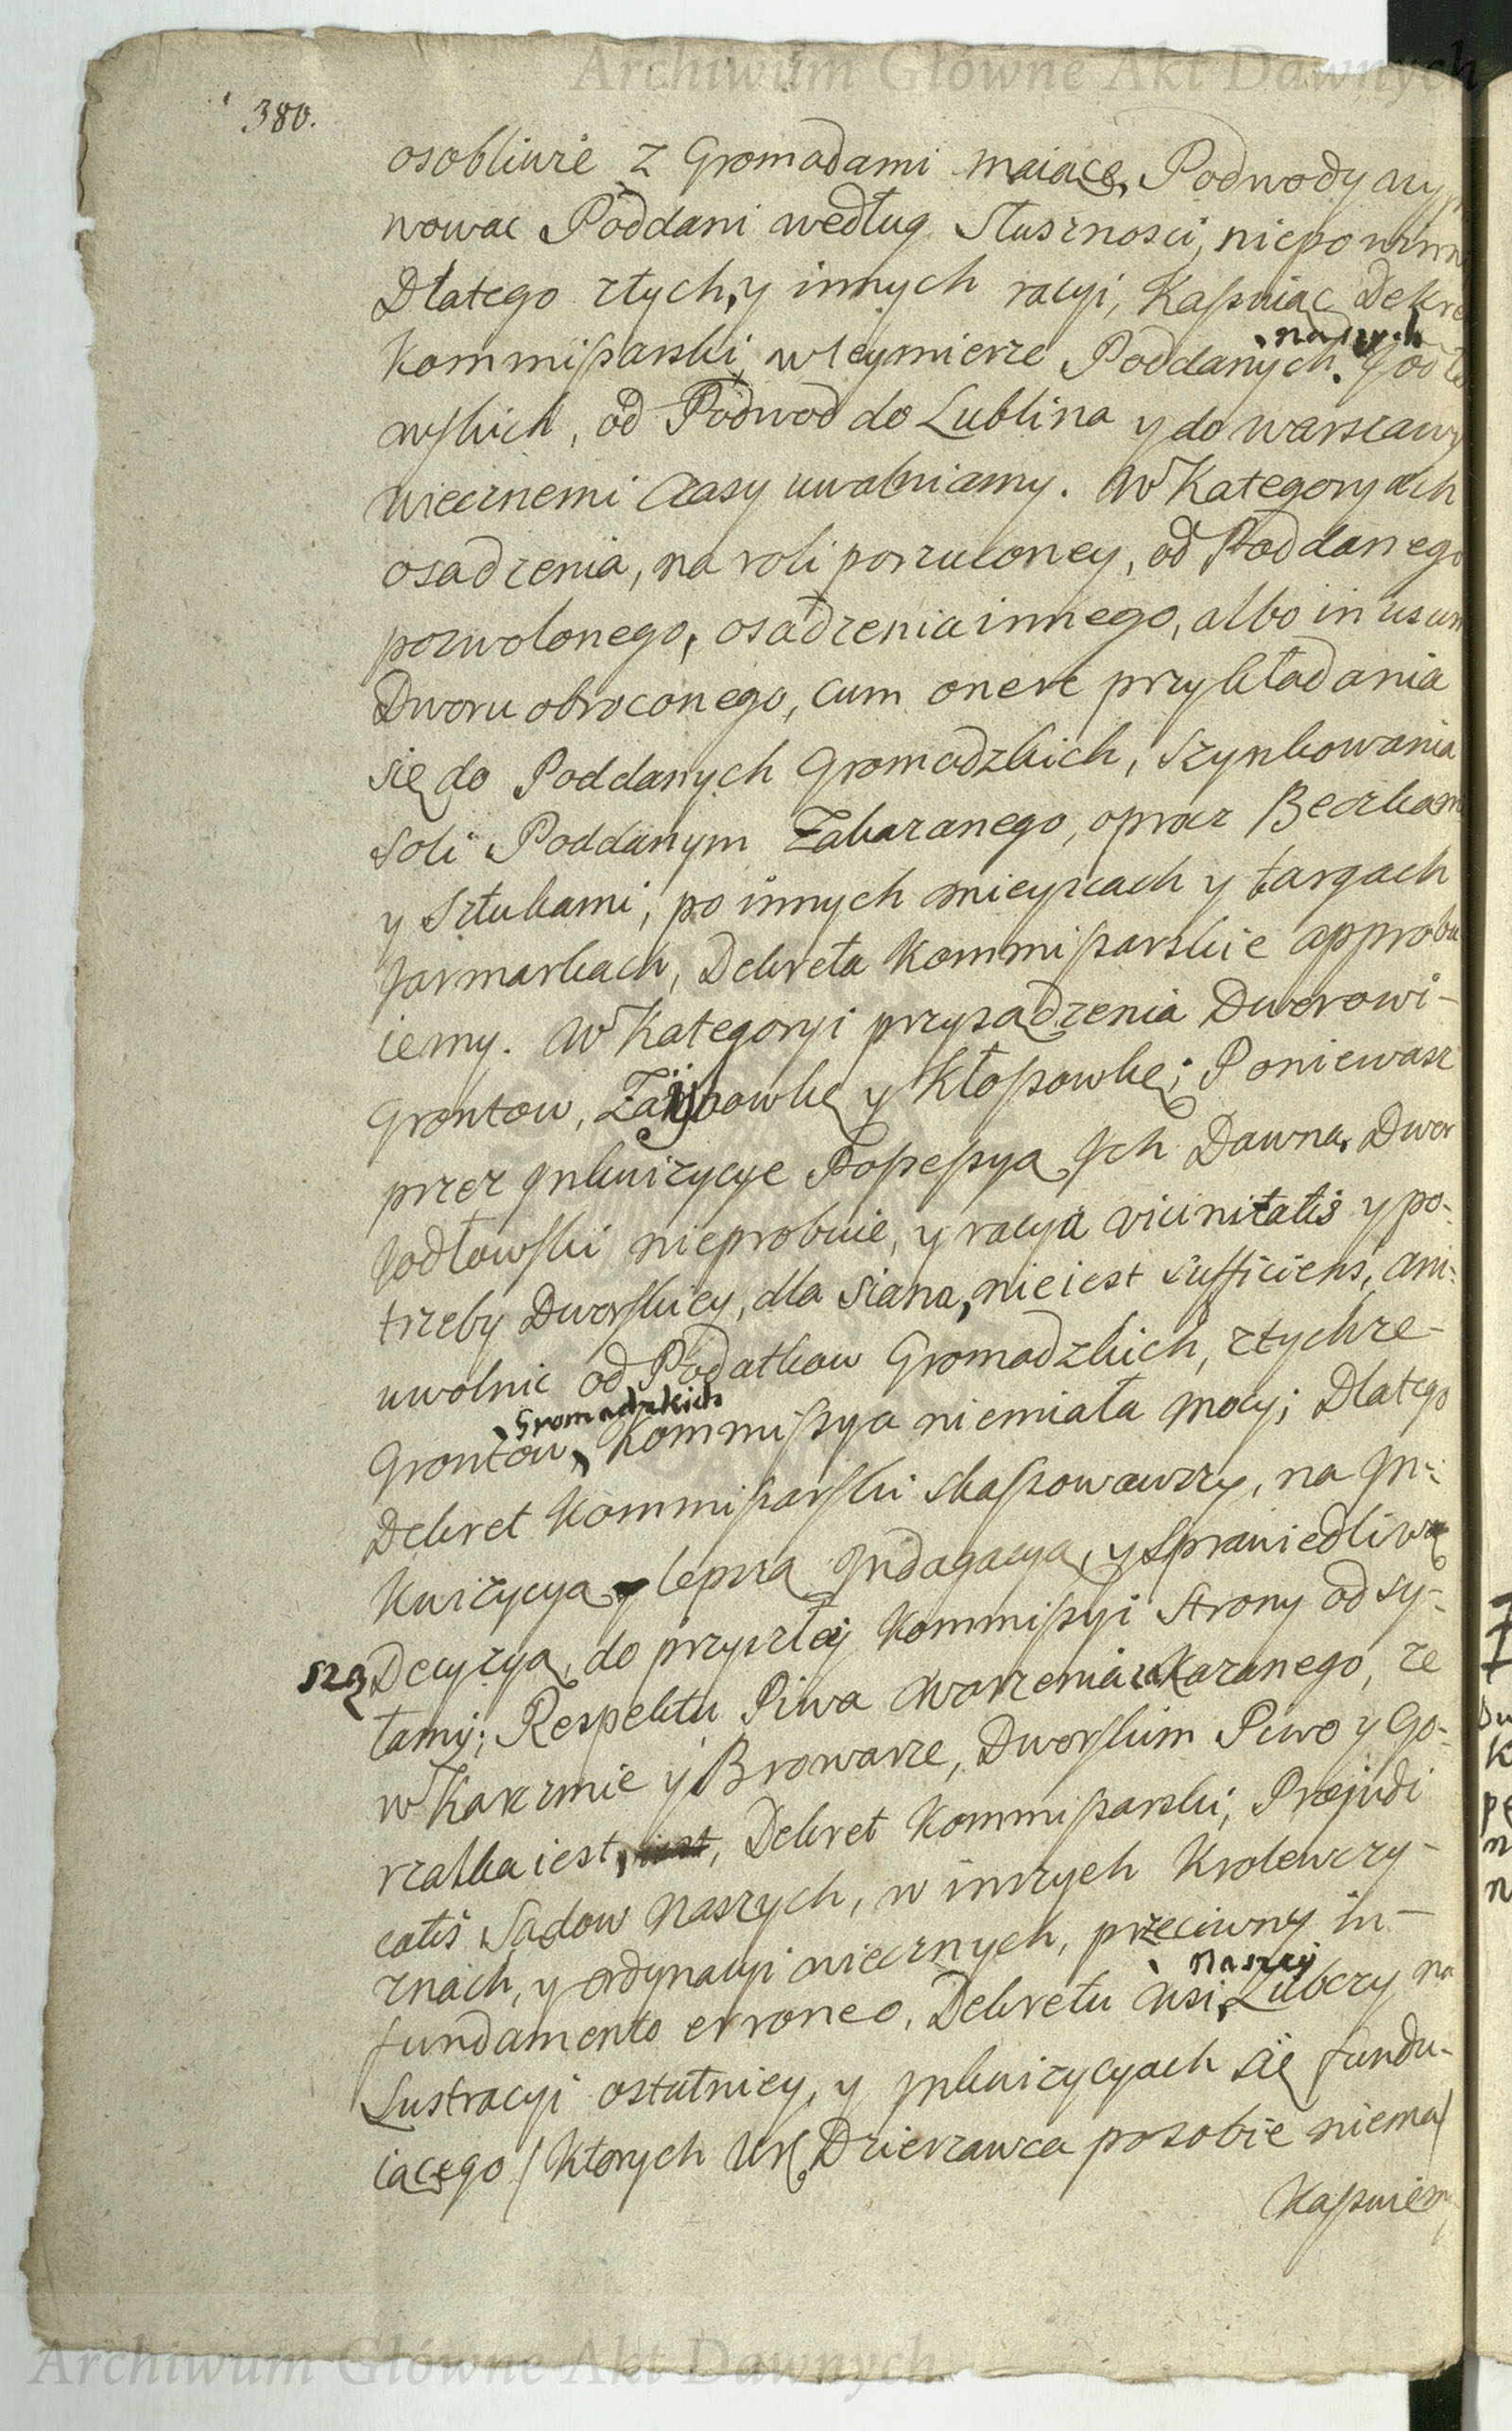 Archiwum Główne Akt Dawnych
380.
osobliwie z Gromadami maiące, Podwody wyp
nowac Poddani według Słusznosci, niepowinn
Dlatego ztych, y innych racyi, Kassuiąc Dekre
naszych
Kommissarski, wteymierze Poddanych Jodło
wskich, od Podwod do Lublina y do warszawy
wiecznemi Czasy uwalniamy. W Kategoryach
osadzenia, na roli porzuconey, od Poddanego
pozwolonego, osadzenia innego, albo in usum
Dworu obroconego, cum onere przykładania
się do Poddanych Gromadzkich, szynkowania
soli Poddanym Zakazanego, oprocz Beczkam
y Sztukami, po innych mieyscach y targach
Jarmarkach, Dekreta Kommissarskie approbu
iemy. W Kategoryi przysądzenia Dworowi-
Grontow, y Kłossowkę; Poniewasz
przez Inkwizycye Possessyą Ich Dawną, Dwor
Jodłowski nieprobuie, y racya vicinitatis y po-
trzeby Dworskiey, dla Siana, nieiest sufficiens, ani
uwolnic od Podatkow Gromadzkich, ztychze-
Gromadzkich
Grontow, Kommissya niemiała mocy; Dlatego
Dekret Kommissarski skassowawszy, na In-
kwizycyą y lepszą Indagacyą, y sprawiedliw
szą Decyzyą, do przyszłey Kommissyi Strony odsy-
łamy; Respektu Piwa warzenia zakazanego, ze
w Karczmie y Browarze, Dworskim Piwo y Go-
rzałka iest, iest, Dekret Kommissarski, Præjudi
catis Sądow Naszych, w inszych Krolewczy-
znach, y ordynacyi wiecznych, przeciwny in-
naszey
fundamento erroneo, Dekretu wsi, Lubczy na
Lustracyi ostatniey, y Inkwizycyach się fundu-
iącego / Ktorych Ur. Dzierzawca posobie niema /
Kassuiem
Archiwum Główne Akt Dawnych